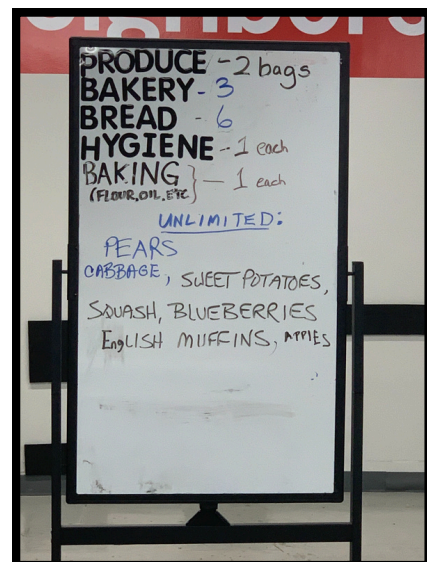 PRODUCE - 2 bags
BAKERY - 3
BREAD - 6
HYGIENE - 1 each
BAKING } — 1 each
(FLOUR, OIL, ETC
UNLIMITED:
PEARS
CABBAGE, SWEET POTATOES,
SQUASH, BLUEBERRIES
EngLISH MUFFINS, APPLES